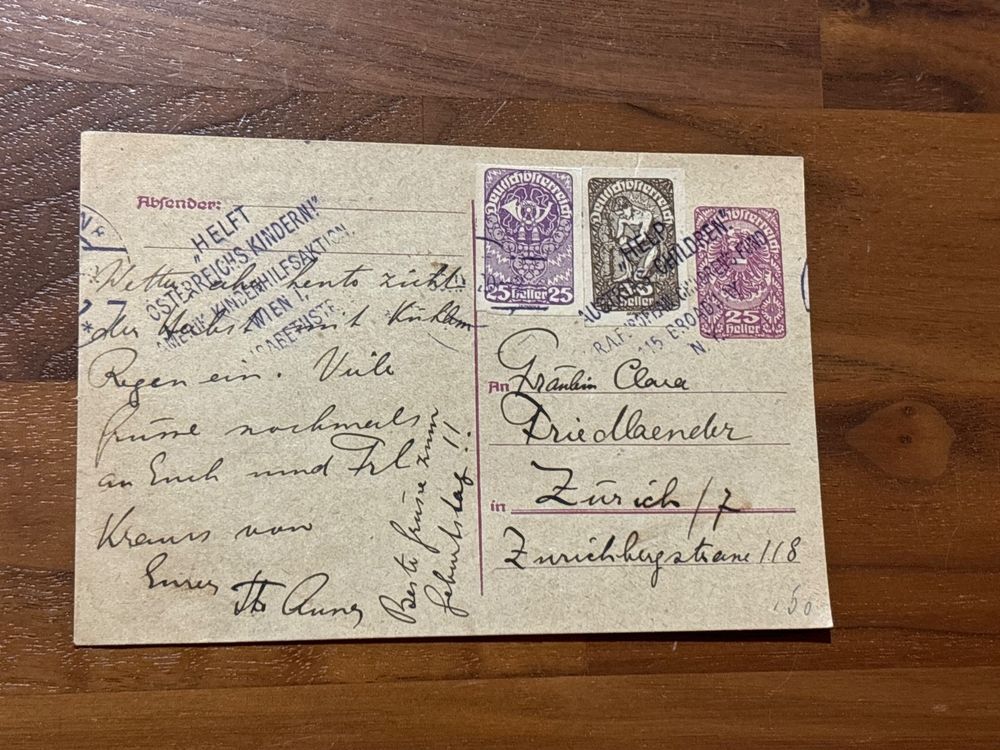 Absender:
"HELFT
ÖSTERREICHS KINDERN!"
KINDERHILFSAKTION.
WIEN I.
Wetter aber
der Herbst mit
Regen ein. Viele
Grüsse nochmals
an Euch und Frl
Kraus von
Eurer
Beste Grüsse zum
Geburtstag!!
Deutschösterreich
25 heller 25
Deutschösterreich
heller
Deutschösterreich
25
heller
"HELP
CHILDREN"
115 BROADWAY
N.
An Fräulein Clara
Friedlaender
in Zürich/7
Zürichbergstrasse 118
50